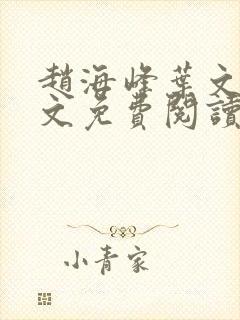 趙海峰葉文
文免費閱讀
小青家